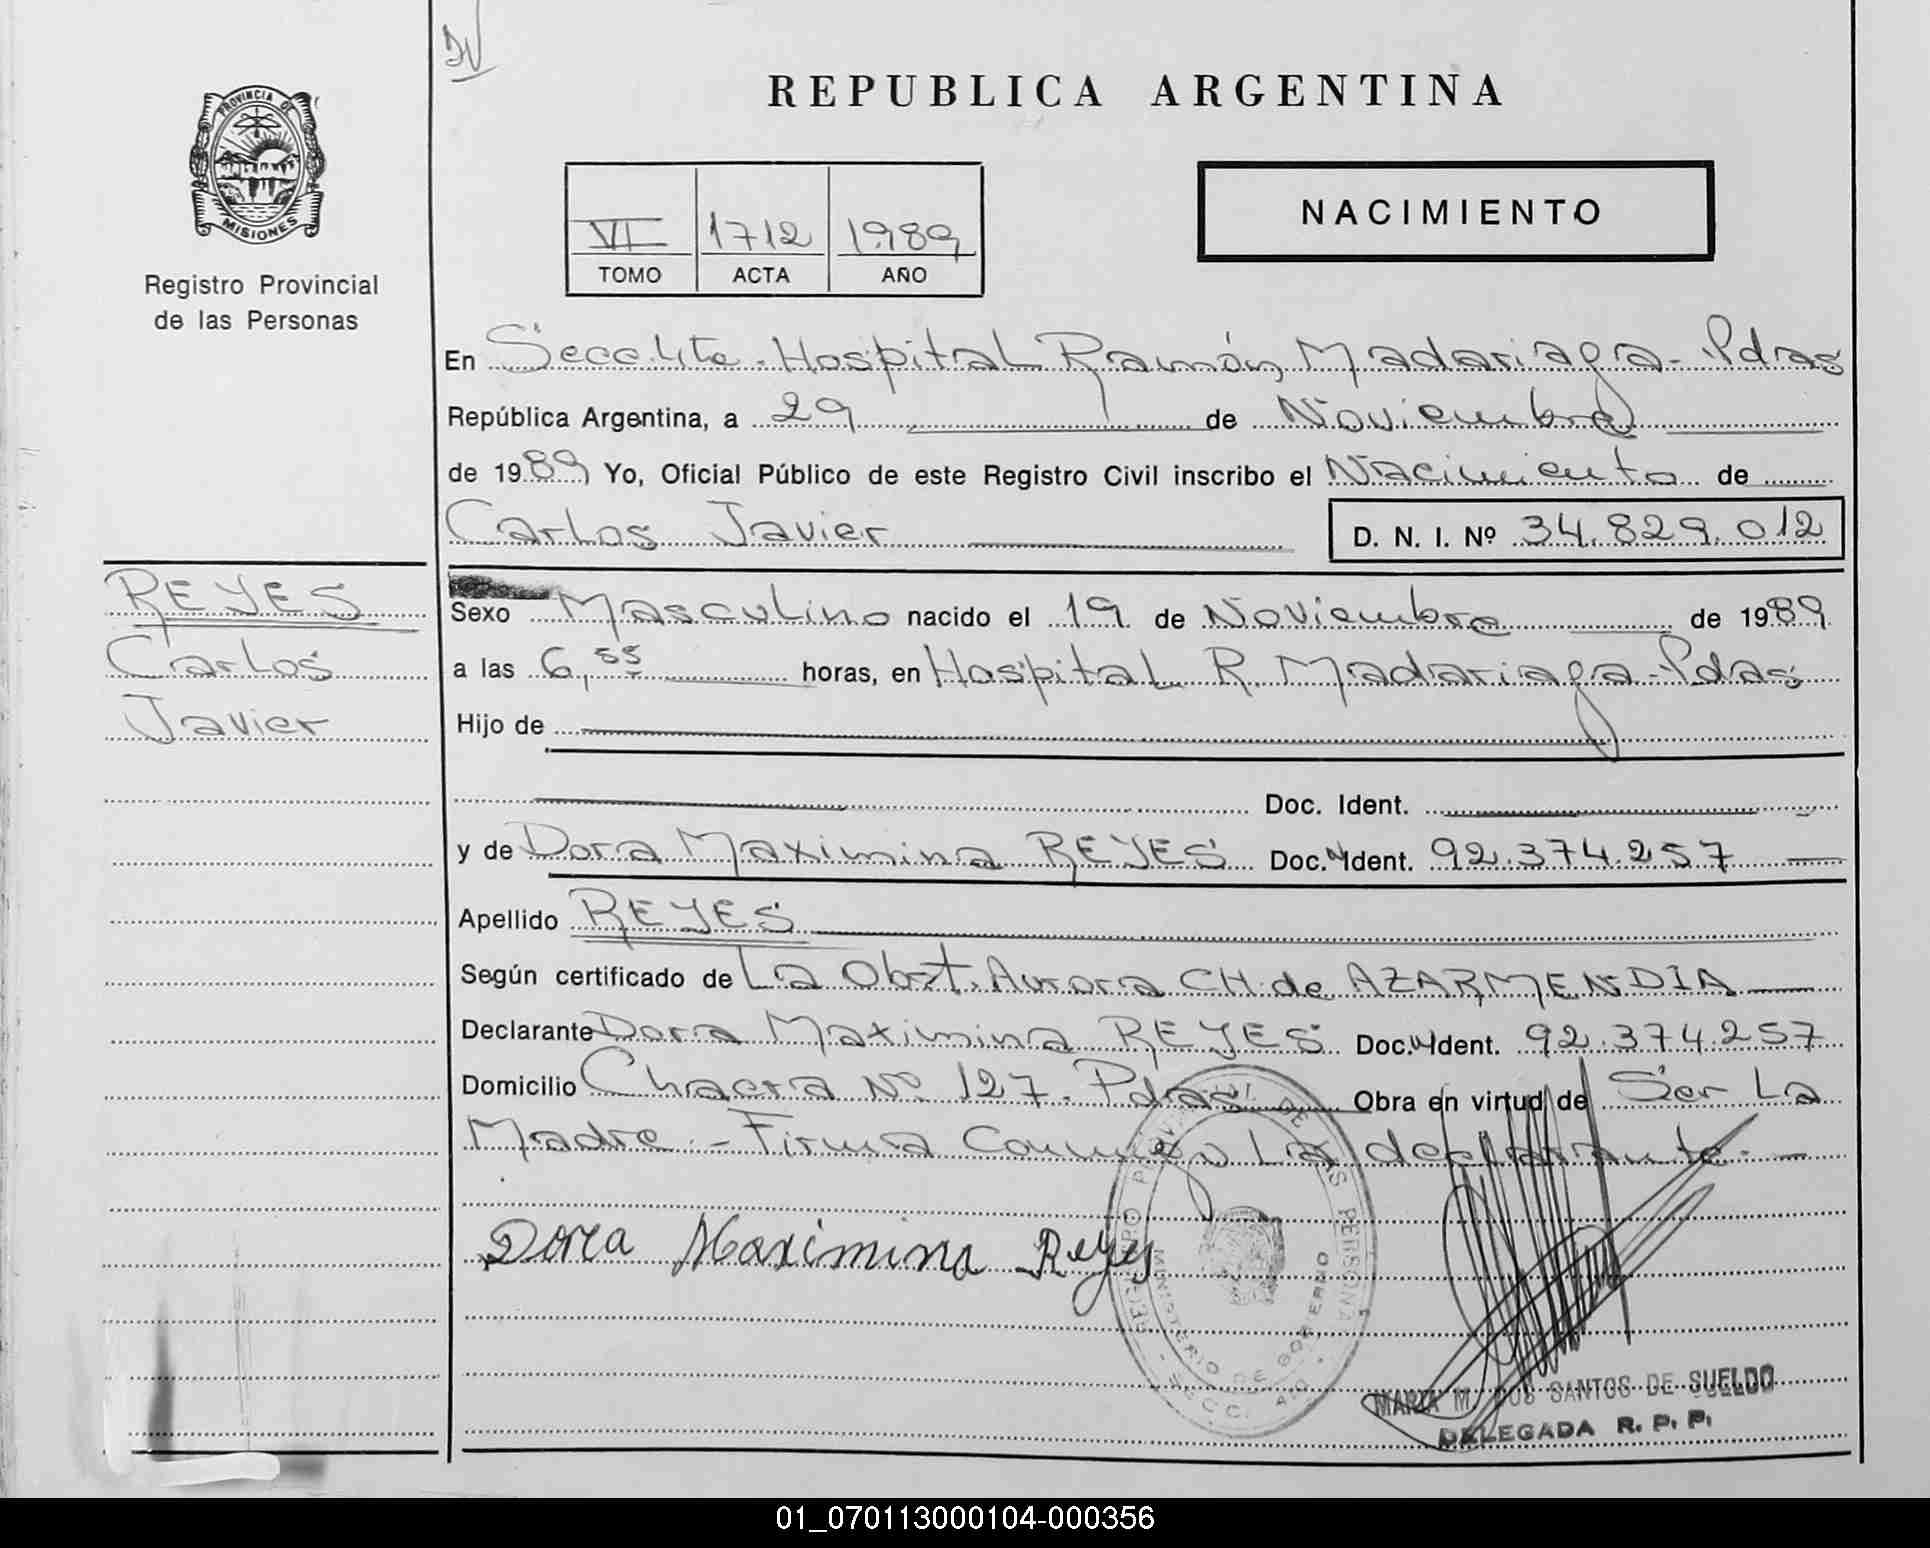 REPUBLICA ARGENTINA
PROVINCIA DE
MISIONES
Registro Provincial
de las Personas
VI 1712 1989
TOMO ACTA AÑO
NACIMIENTO
En Secc. Hospital Ramón Madariaga - Pdas
República Argentina, a 29 de Noviembre
de 1989 Yo, Oficial Público de este Registro Civil inscribo el Nacimiento de
Carlos Javier
D. N. I. Nº 34.829.012
REYES
Carlos
Javier
Sexo Masculino nacido el 19 de Noviembre de 1989
a las 6,55 horas, en Hospital R. Madariaga - Pdas
Hijo de
Doc. Ident.
y de Dora Maximina REYES Doc. Ident. 92.374.257
Apellido REYES
Según certificado de La Obst. Aurora CH de AZARMENDIA
Declarante Dora Maximina REYES Doc. Ident. 92.374.257
Domicilio Chacra Nº 127 - Pdas Obra en virtud de Ser La
Madre - Firma Conmigo La declarante.
Dora Maximina Reyes
MINISTERIO DE GOBIERNO
MARIA M. DOS SANTOS DE SUELDO
DELEGADA R. P. P.
01_070113000104-000356